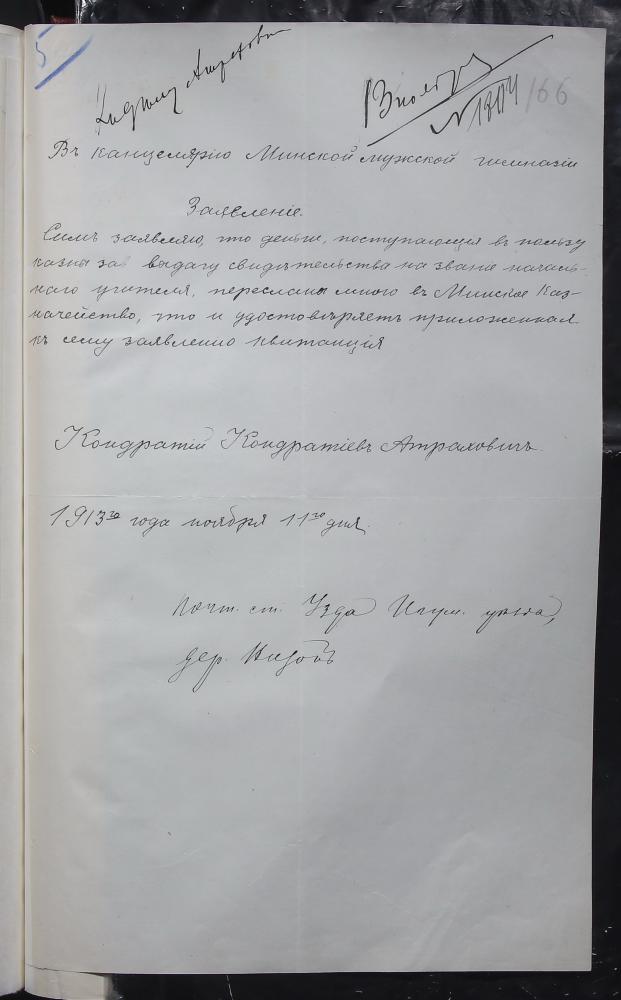 5
13 ноября
№ 1804
166
Въ канцелярію Минской мужской гимназіи
Заявленіе.
Симъ заявляю, что деньги, поступающія въ пользу
казны за выдачу свидѣтельства на званіе началь-
наго учителя, пересланы мною въ Минское Каз-
начейство, что и удостовѣряетъ приложенная
къ сему заявленію квитанція
Кондратій Кондратіевъ Атраховичъ.
1913го года ноября 11го дня.
почт. ст. Узда Игум. уѣзда,
дер. Низокъ